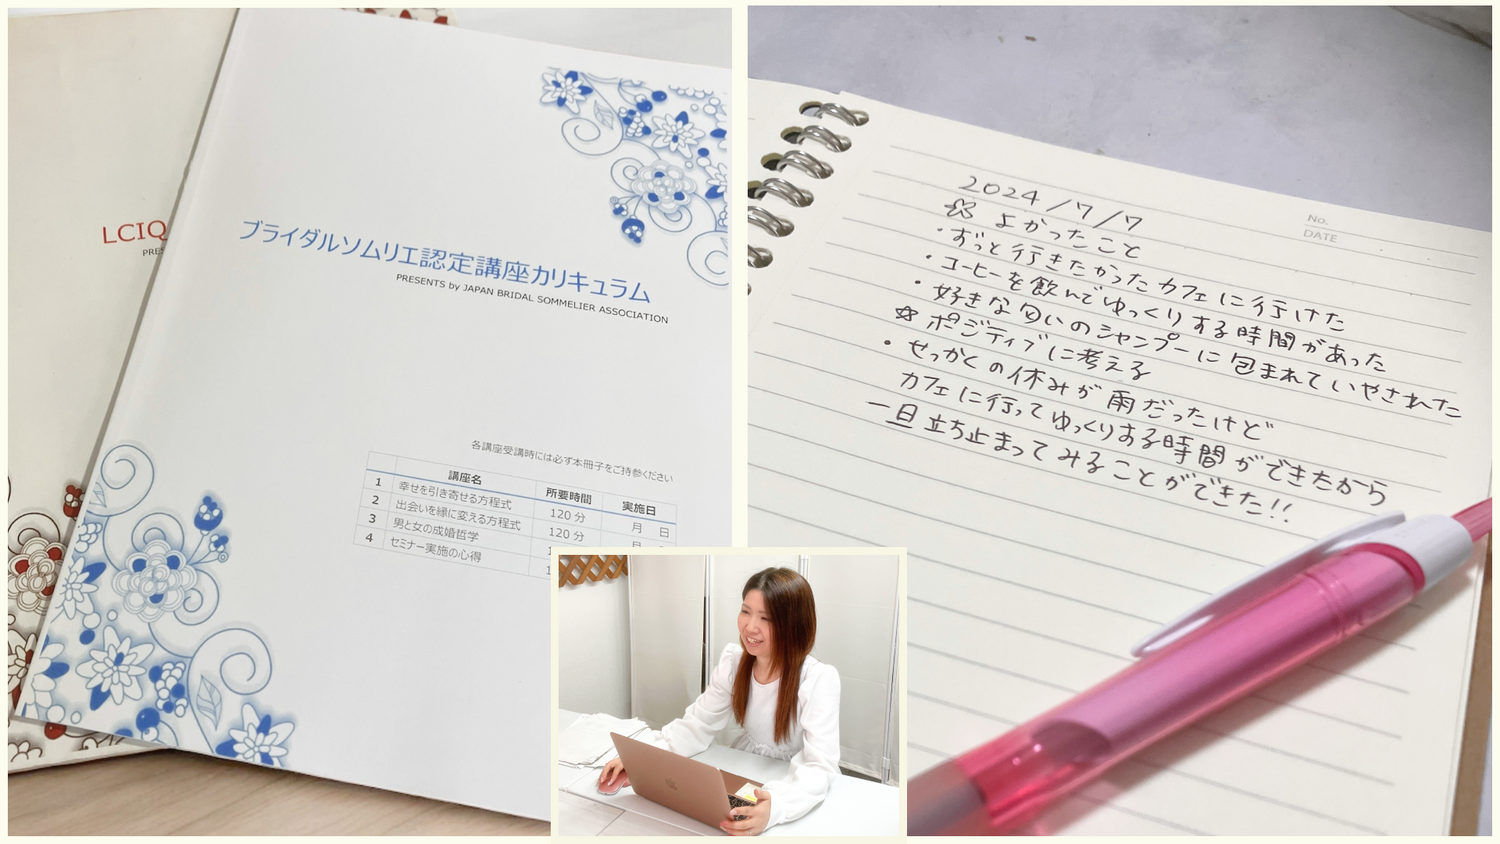 LCIQ
PRE
ブライダルソムリエ認定講座カリキュラム
PRESENTS by JAPAN BRIDAL SOMMELIER ASSOCIATION
各講座受講時には必ず本冊子をご持参ください
講座名 所要時間 実施日
1 幸せを引き寄せる方程式 120 分 月 日
2 出会いを縁に変える方程式 120 分 月
3 男と女の成婚哲学 1
4 セミナー実施の心得 1
No.
DATE
2024/7/7
よかったこと
・ずっと行きたかったカフェに行けた
・コーヒーを飲んでゆっくりする時間があった
・好きな匂いのシャンプーに包まれていやされた
ポジティブに考える
・せっかくの休みが雨だったけど
カフェに行ってゆっくりする時間ができたから
一旦立ち止まってみることができた!!